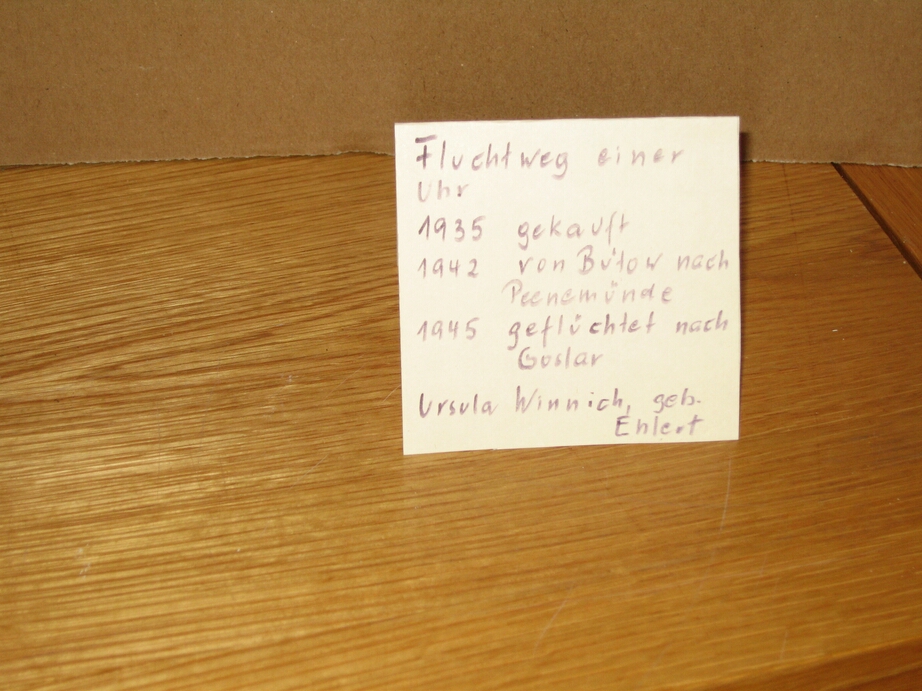 Fluchtweg einer
Uhr
1935 gekauft
1942 von Bütow nach
Peenemünde
1945 geflüchtet nach
Goslar
Ursula Winnich, geb.
Ehlert